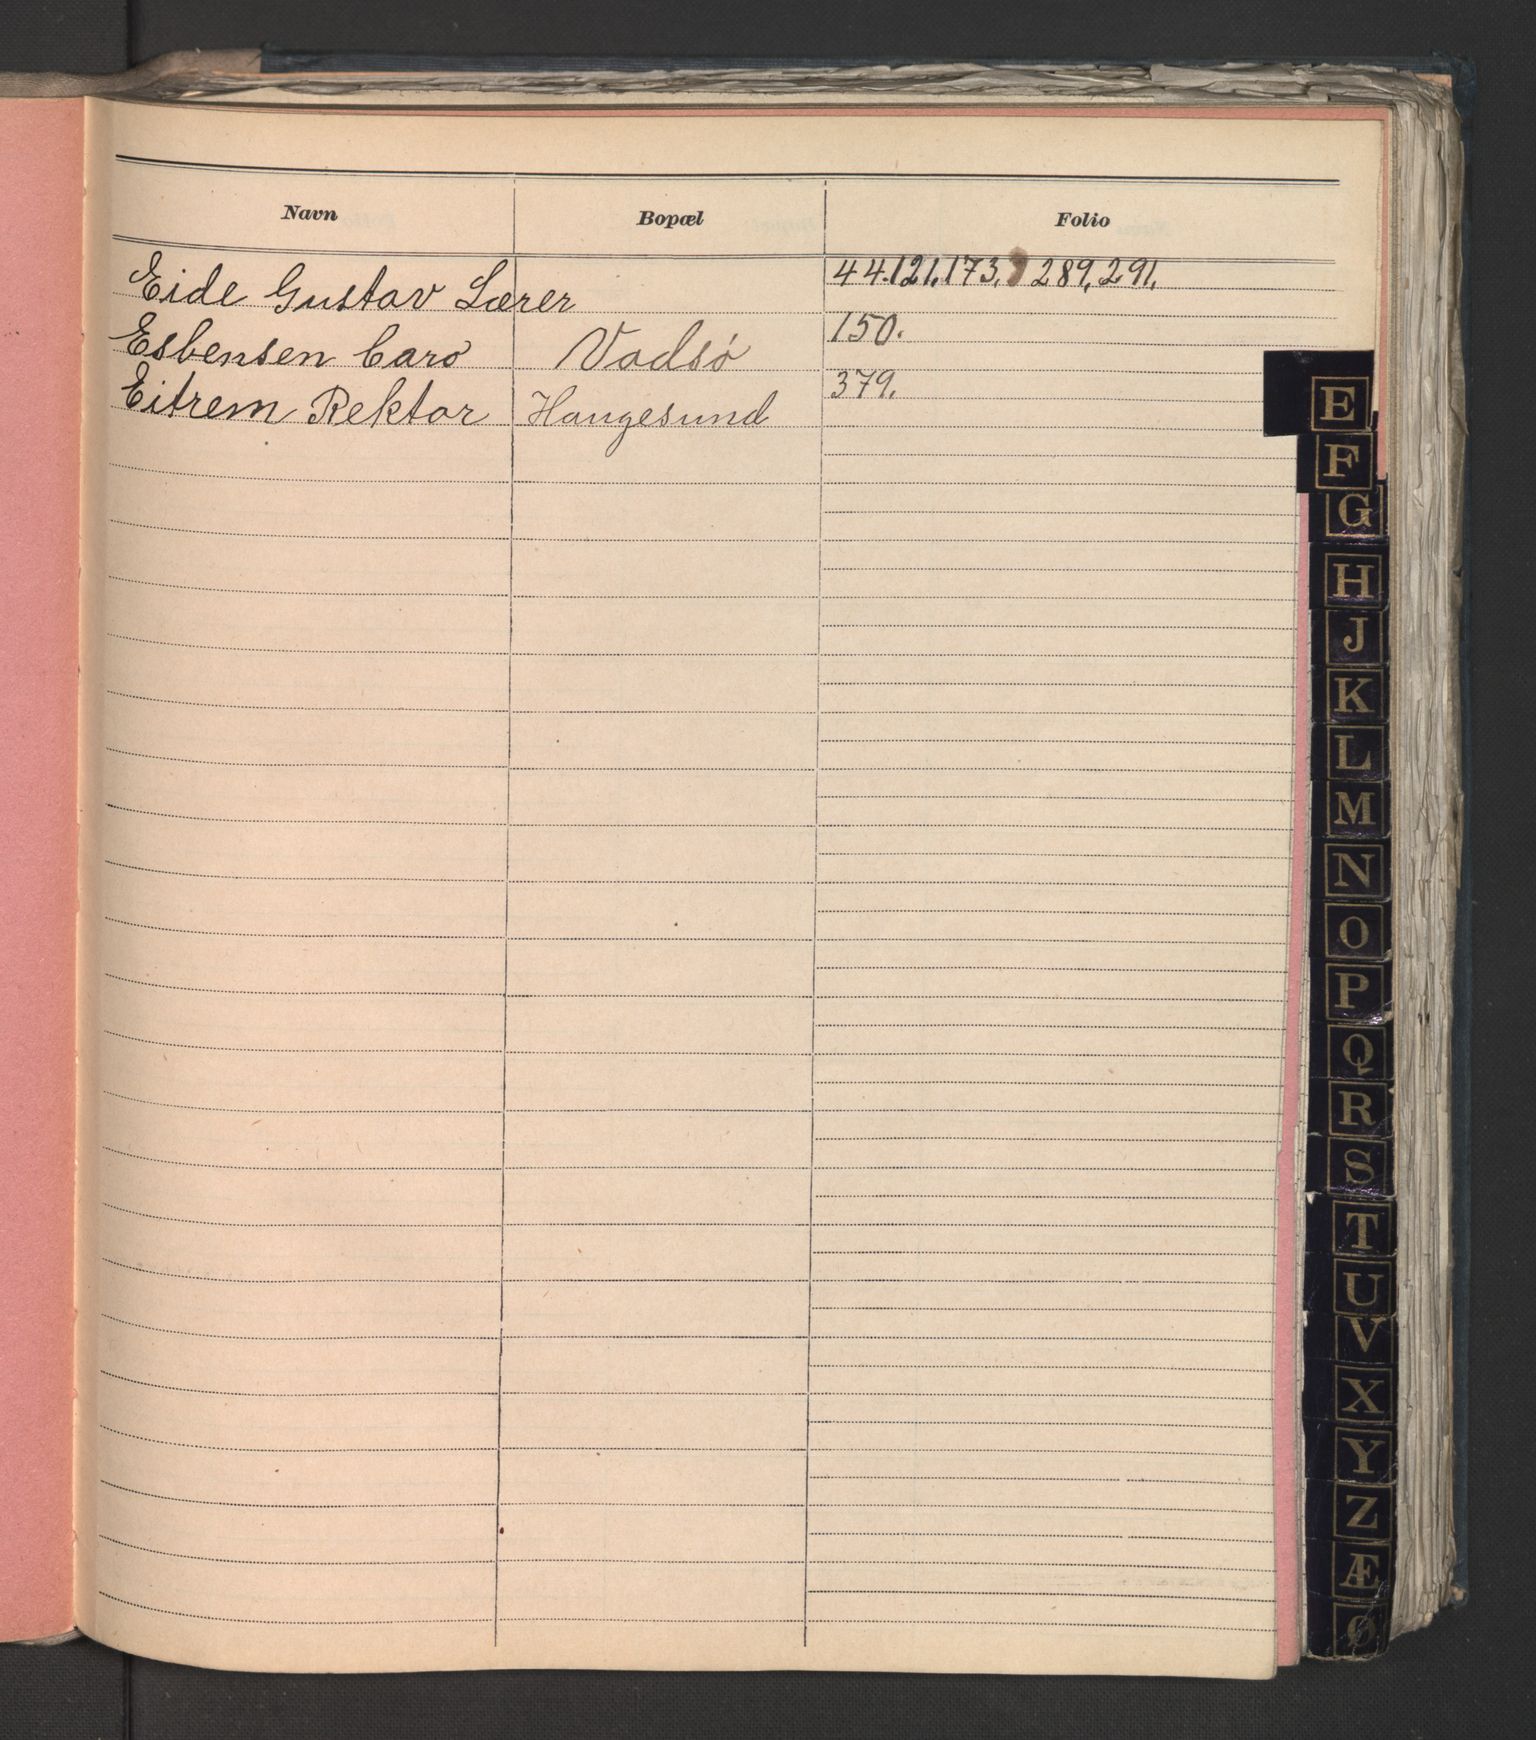 Navn Bopæl Folio
Eide Gustav Lærer 44. 121. 173. 289, 291.
Esbensen Caro Vadsö 150.
Eitrem Rektor Haugesund 379.
E
F
G
H
J
K
L
M
N
O
P
Q
R
S
T
U
V
X
Y
Z
Æ
Ø